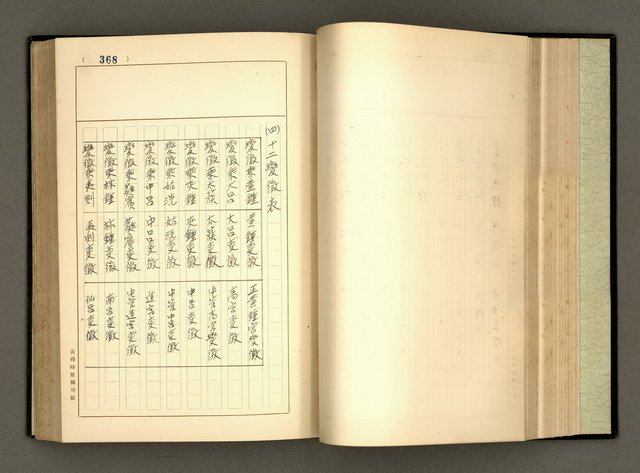 (368)
(四)十二變徵表
變徵乘黃鍾 黃鍾變徵 正黃鍾宮變徵
變徵乘大呂 大呂變徵 高宮變徵
變徵乘太簇 太簇變徵 中管高宮變徵
變徵乘夾鍾 夾鍾變徵 中呂變徵
變徵乘姑洗 姑洗變徵 中管中宮變徵
變徵乘中呂 中呂變徵 道宮變徵
變徵乘蕤賓 蕤賓變徵 中管道宮變徵
變徵乘林鍾 林鍾變徵 南宮變徵
變徵乘夷則 夷則變徵 仙呂變徵
黃得時原稿用紙